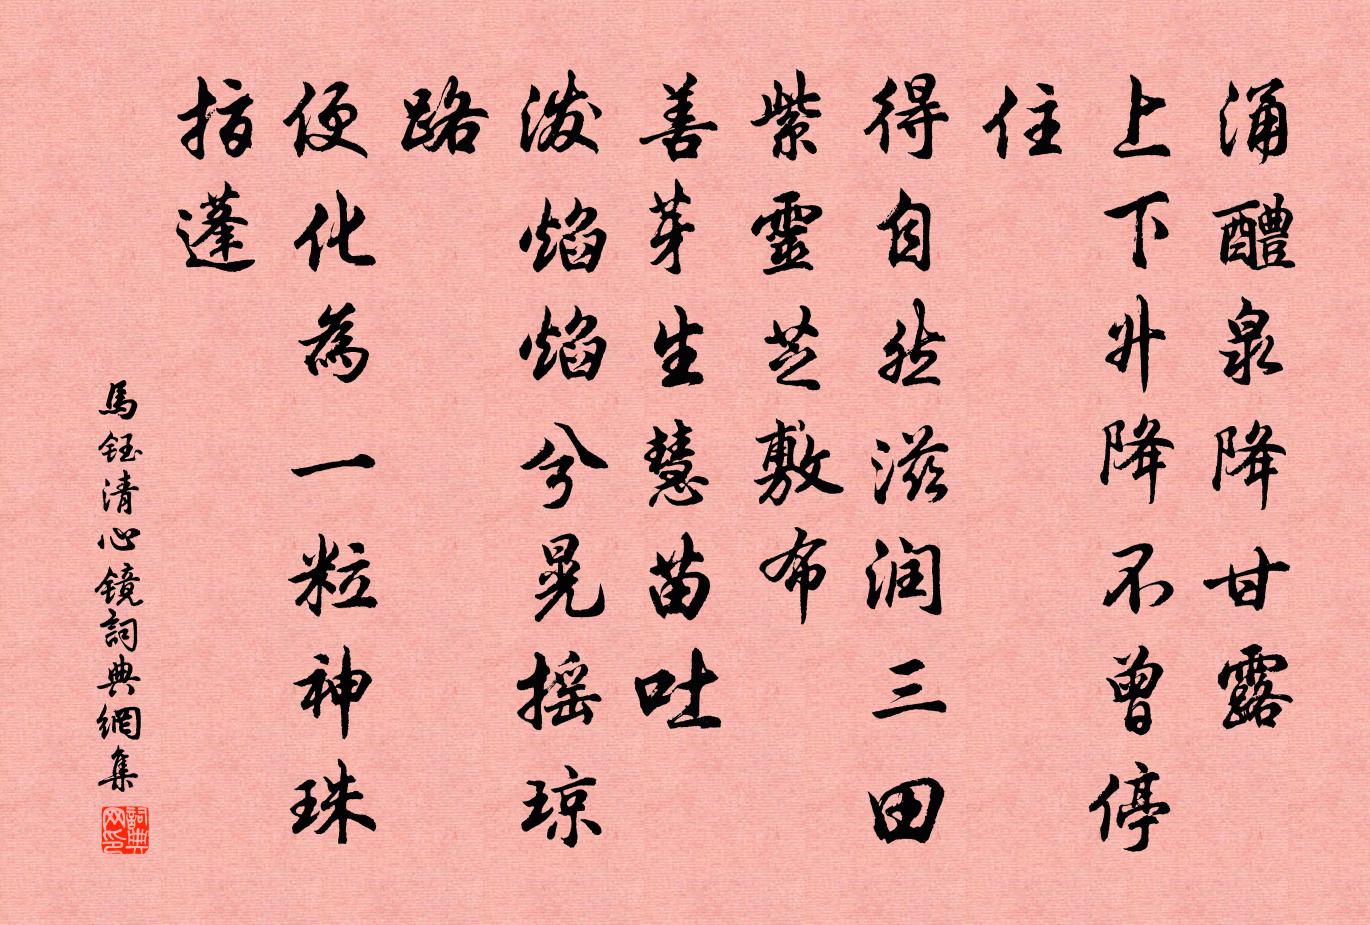 涌醴泉降甘露
上下升降不曾停
住
得自然滋润三田
紫靈芝敷布
善芽生慧苗吐
泼焰焰兮晃摇琼
路
便化為一粒神珠
指蓬
馬鈺清心镜詞典網集
詞典网印